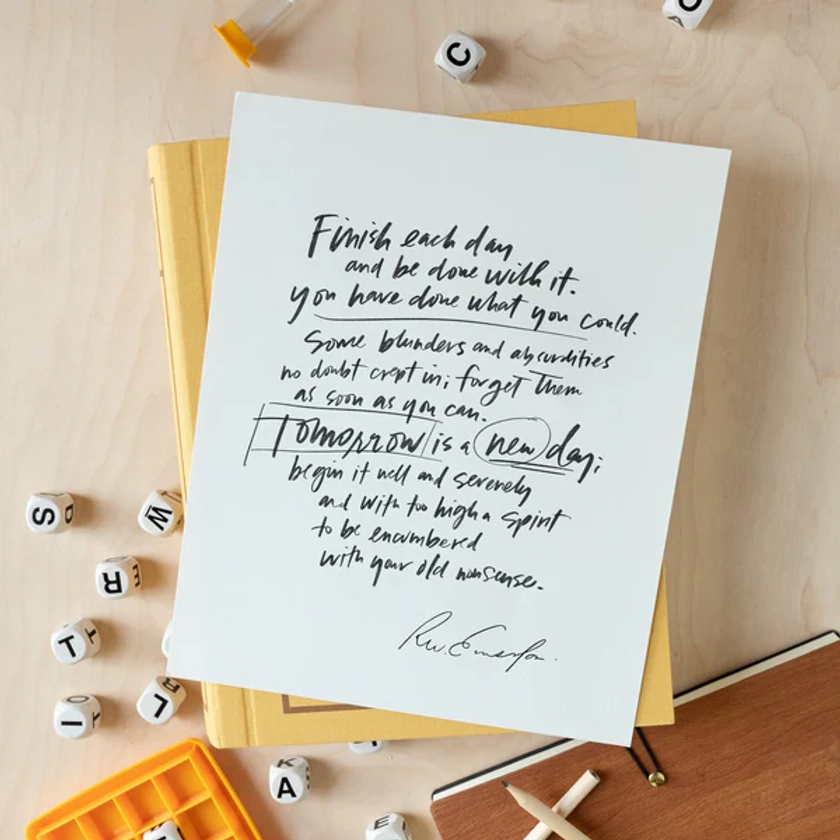 Finish each day
and be done with it.
you have done what you could.
Some blunders and absurdities
no doubt crept in; forget them
as soon as you can.
Tomorrow is a new day;
begin it well and serenely
and with too high a spirit
to be encumbered
with your old nonsense.
R.W. Emerson.
C
S
W
R
E
T
I
L
R
A
K
E